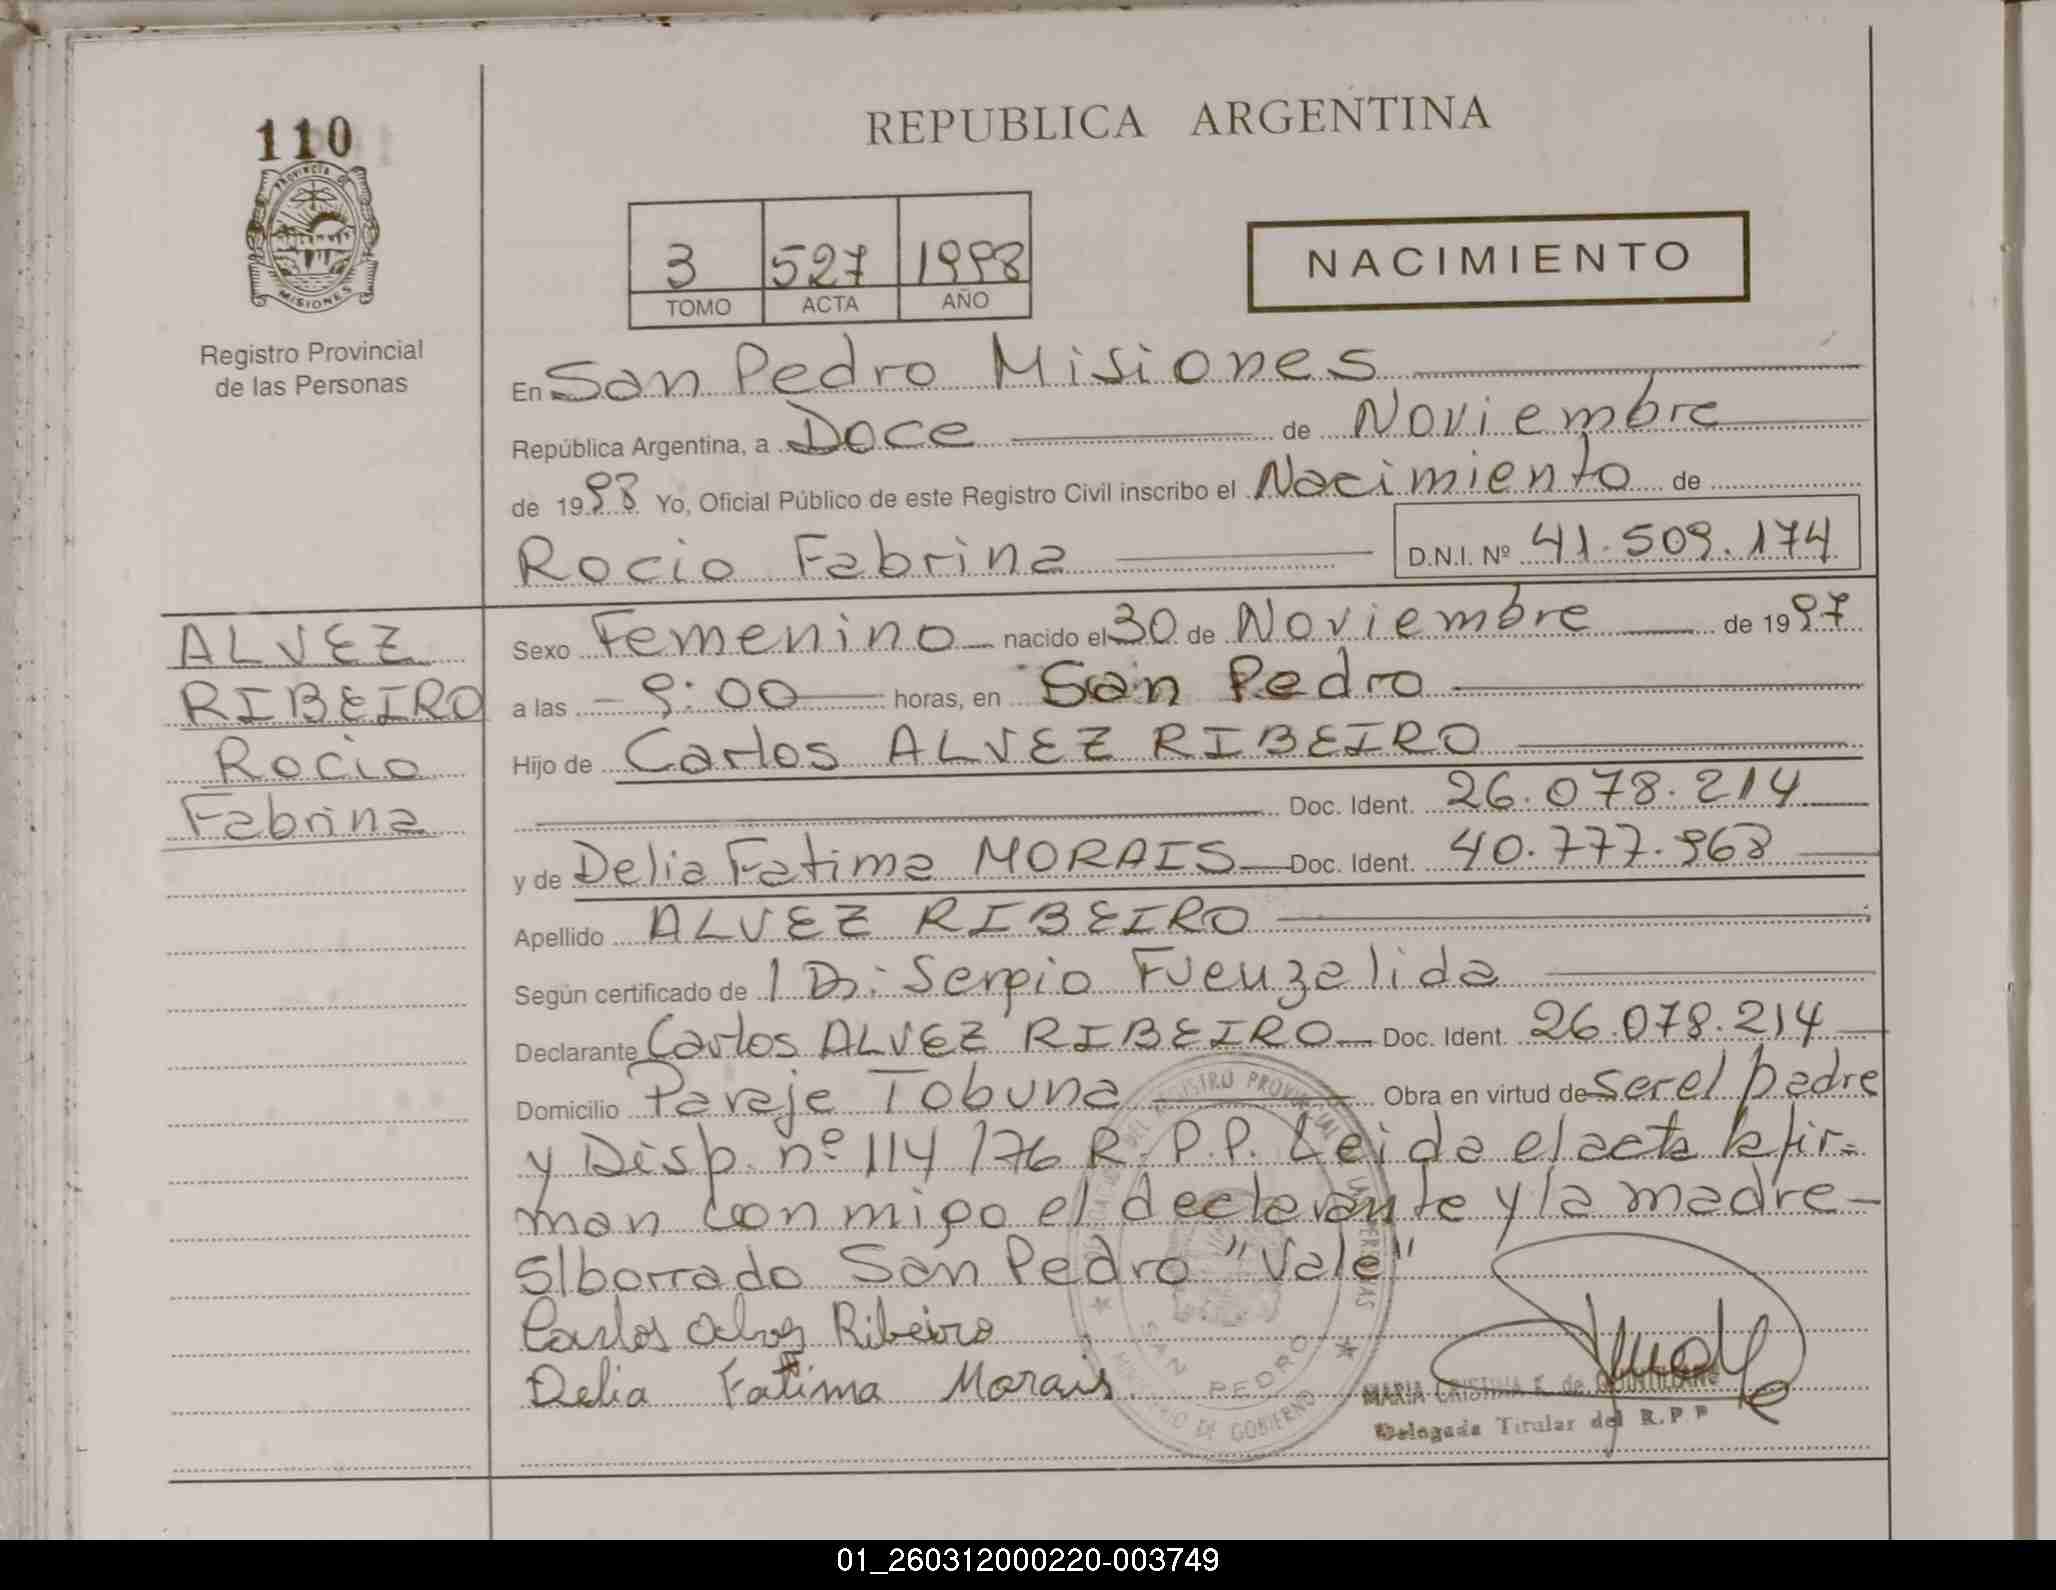 110
PROVINCIA DE
MISIONES
Registro Provincial
de las Personas
REPUBLICA ARGENTINA
3 527 1998
TOMO ACTA AÑO
NACIMIENTO
En San Pedro Misiones
República Argentina, a Doce de Noviembre
de 1998 Yo, Oficial Público de este Registro Civil inscribo el Nacimiento de
Rocio Fabrina D.N.I. Nº 41.509.174
ALVEZ
RIBEIRO
Rocio
Fabrina
Sexo Femenino nacido el 30 de Noviembre de 1997
a las 9:00 horas, en San Pedro
Hijo de Carlos ALVEZ RIBEIRO
Doc. Ident. 26.078.214
y de Delia Fatima MORAIS Doc. Ident. 40.777.968
Apellido ALVEZ RIBEIRO
Según certificado de 1 Dr: Sergio Fuenzalida
Declarante Carlos ALVEZ RIBEIRO Doc. Ident. 26.078.214
Domicilio Paraje Tobuna Obra en virtud de ser el padre
y Disp. nº 114/76 R.P.P. Leida el acta la fir=
man conmigo el declarante y la madre-
S/borrado San Pedro "Vale"
Carlos Alvez Ribeiro
Delia Fatima Morais
SAN PEDRO
MINISTERIO DE GOBIERNO
MARIA CRISTINA F. de
Delegada Titular del R.P.P
01_260312000220-003749